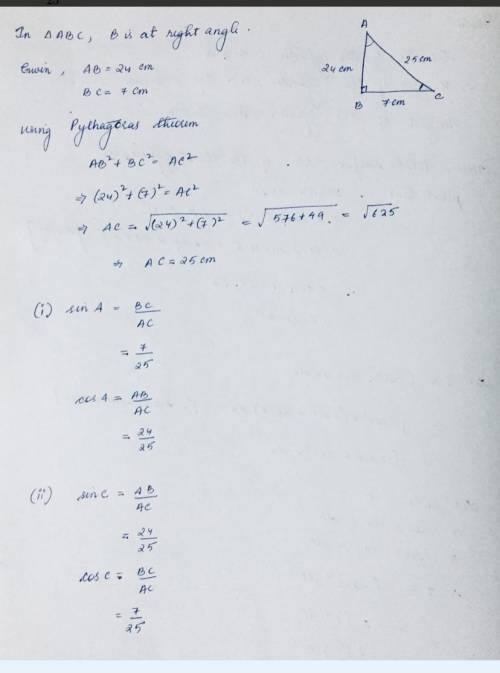 In ΔABC, B is at right angle.
Given, AB = 24 cm
BC = 7 cm
A
24 cm
25 cm
B
7 cm
C
using Pythagoras theorem
AB² + BC² = AC²
⇒ (24)² + (7)² = AC²
⇒ AC = √(24)² + (7)² = √576 + 49 = √625
⇒ AC = 25 cm
(i) sin A = BC/AC
= 7/25
cos A = AB/AC
= 24/25
(ii) sin C = AB/AC
= 24/25
cos C = BC/AC
= 7/25